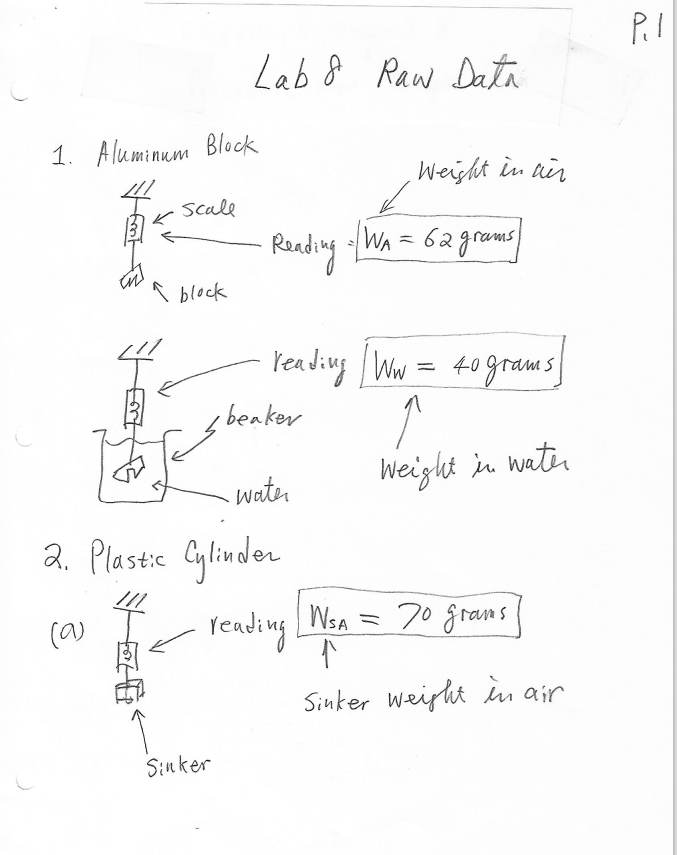 P.1
Lab 8 Raw Data
1. Aluminum Block
Weight in air
scale
Reading = WA = 62 grams
block
reading WW = 40 grams
beaker
Weight in water
water
2. Plastic Cylinder
(a)
reading WSA = 70 grams
Sinker weight in air
Sinker